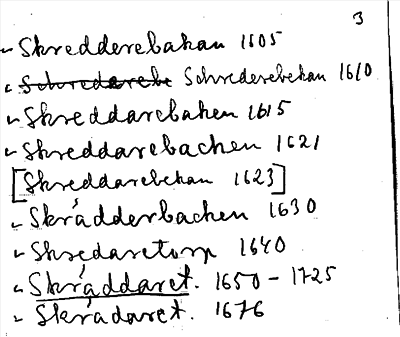 3
" Skredderebakan 1605
" ~~Schredarebe~~ Schrederebekan 1610
" Skreddarebaken 1615
" Skreddarebachen 1621
[Skreddarebekan 1623]
" Skrådderbachen 1630
" Skredaretorp 1640
" Skråddaret. 1650 - 1725
" Skrådaret. 1676